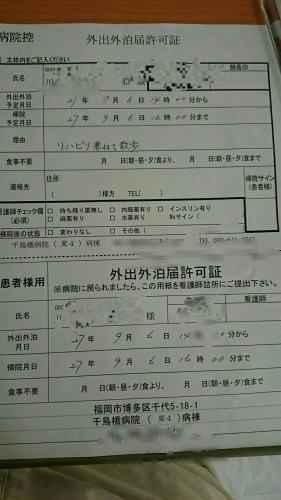 病院控 外出外泊届許可証
太枠内をご記入ください 師長印
氏名
外出外泊予定月日 27年 9月 6日 14時 00分から
帰院予定月日 27年 9月 6日 16時 00分まで
理由 リハビリ兼ねて散歩
食事不要 月 日(朝・昼・夕)食より、 月 日(朝・昼・夕)食まで
連絡先 住所: 帰院サイン(患者様)
( )様方 TEL( )
看護師チェック欄(必須) □ 持ち帰り薬無し □ 内服薬有り □ インスリン有り
□ 麻薬有り □ 水薬有り Nsサイン( )
帰院後の状態 □ 変わりなし □ その他 (
千鳥橋病院( 東4 )病棟 TEL 092-
患者様用 外出外泊届許可証
※病院に戻られましたら、この用紙を看護師詰所にご提出下さい。
氏名 様 看護師
外出外泊月日 27年 9月 6日 14 0分から
帰院月日 27年 9月 6日 16時 00分まで
食事不要 月 日(朝・昼・夕)食より、 月 日(朝・昼・夕)食まで
福岡市博多区千代5-18-1
千鳥橋病院( 東4 )病棟